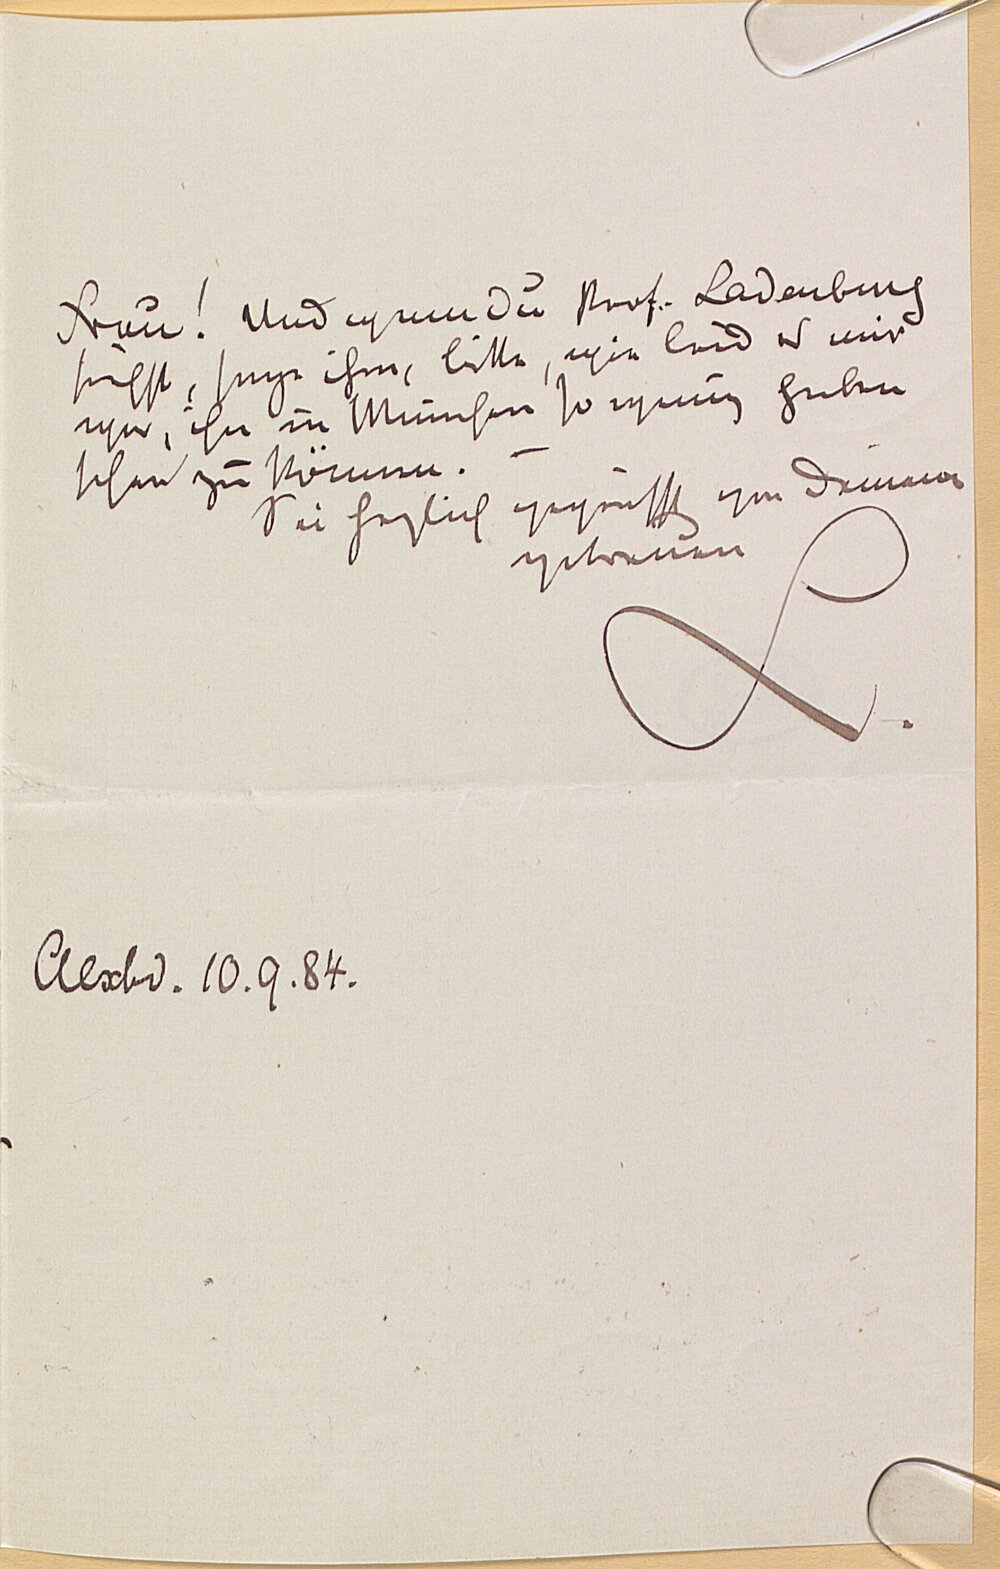 Frau! Und wenn Du Prof. Ladenburg
siehst, sage ihm, bitte, wie leid es mir
war, ihn in München so wenig haben
sehen zu können. –
Sei herzlich gegrüßt von Deinem
getreuen
L.
Alexbd. 10.9.84.